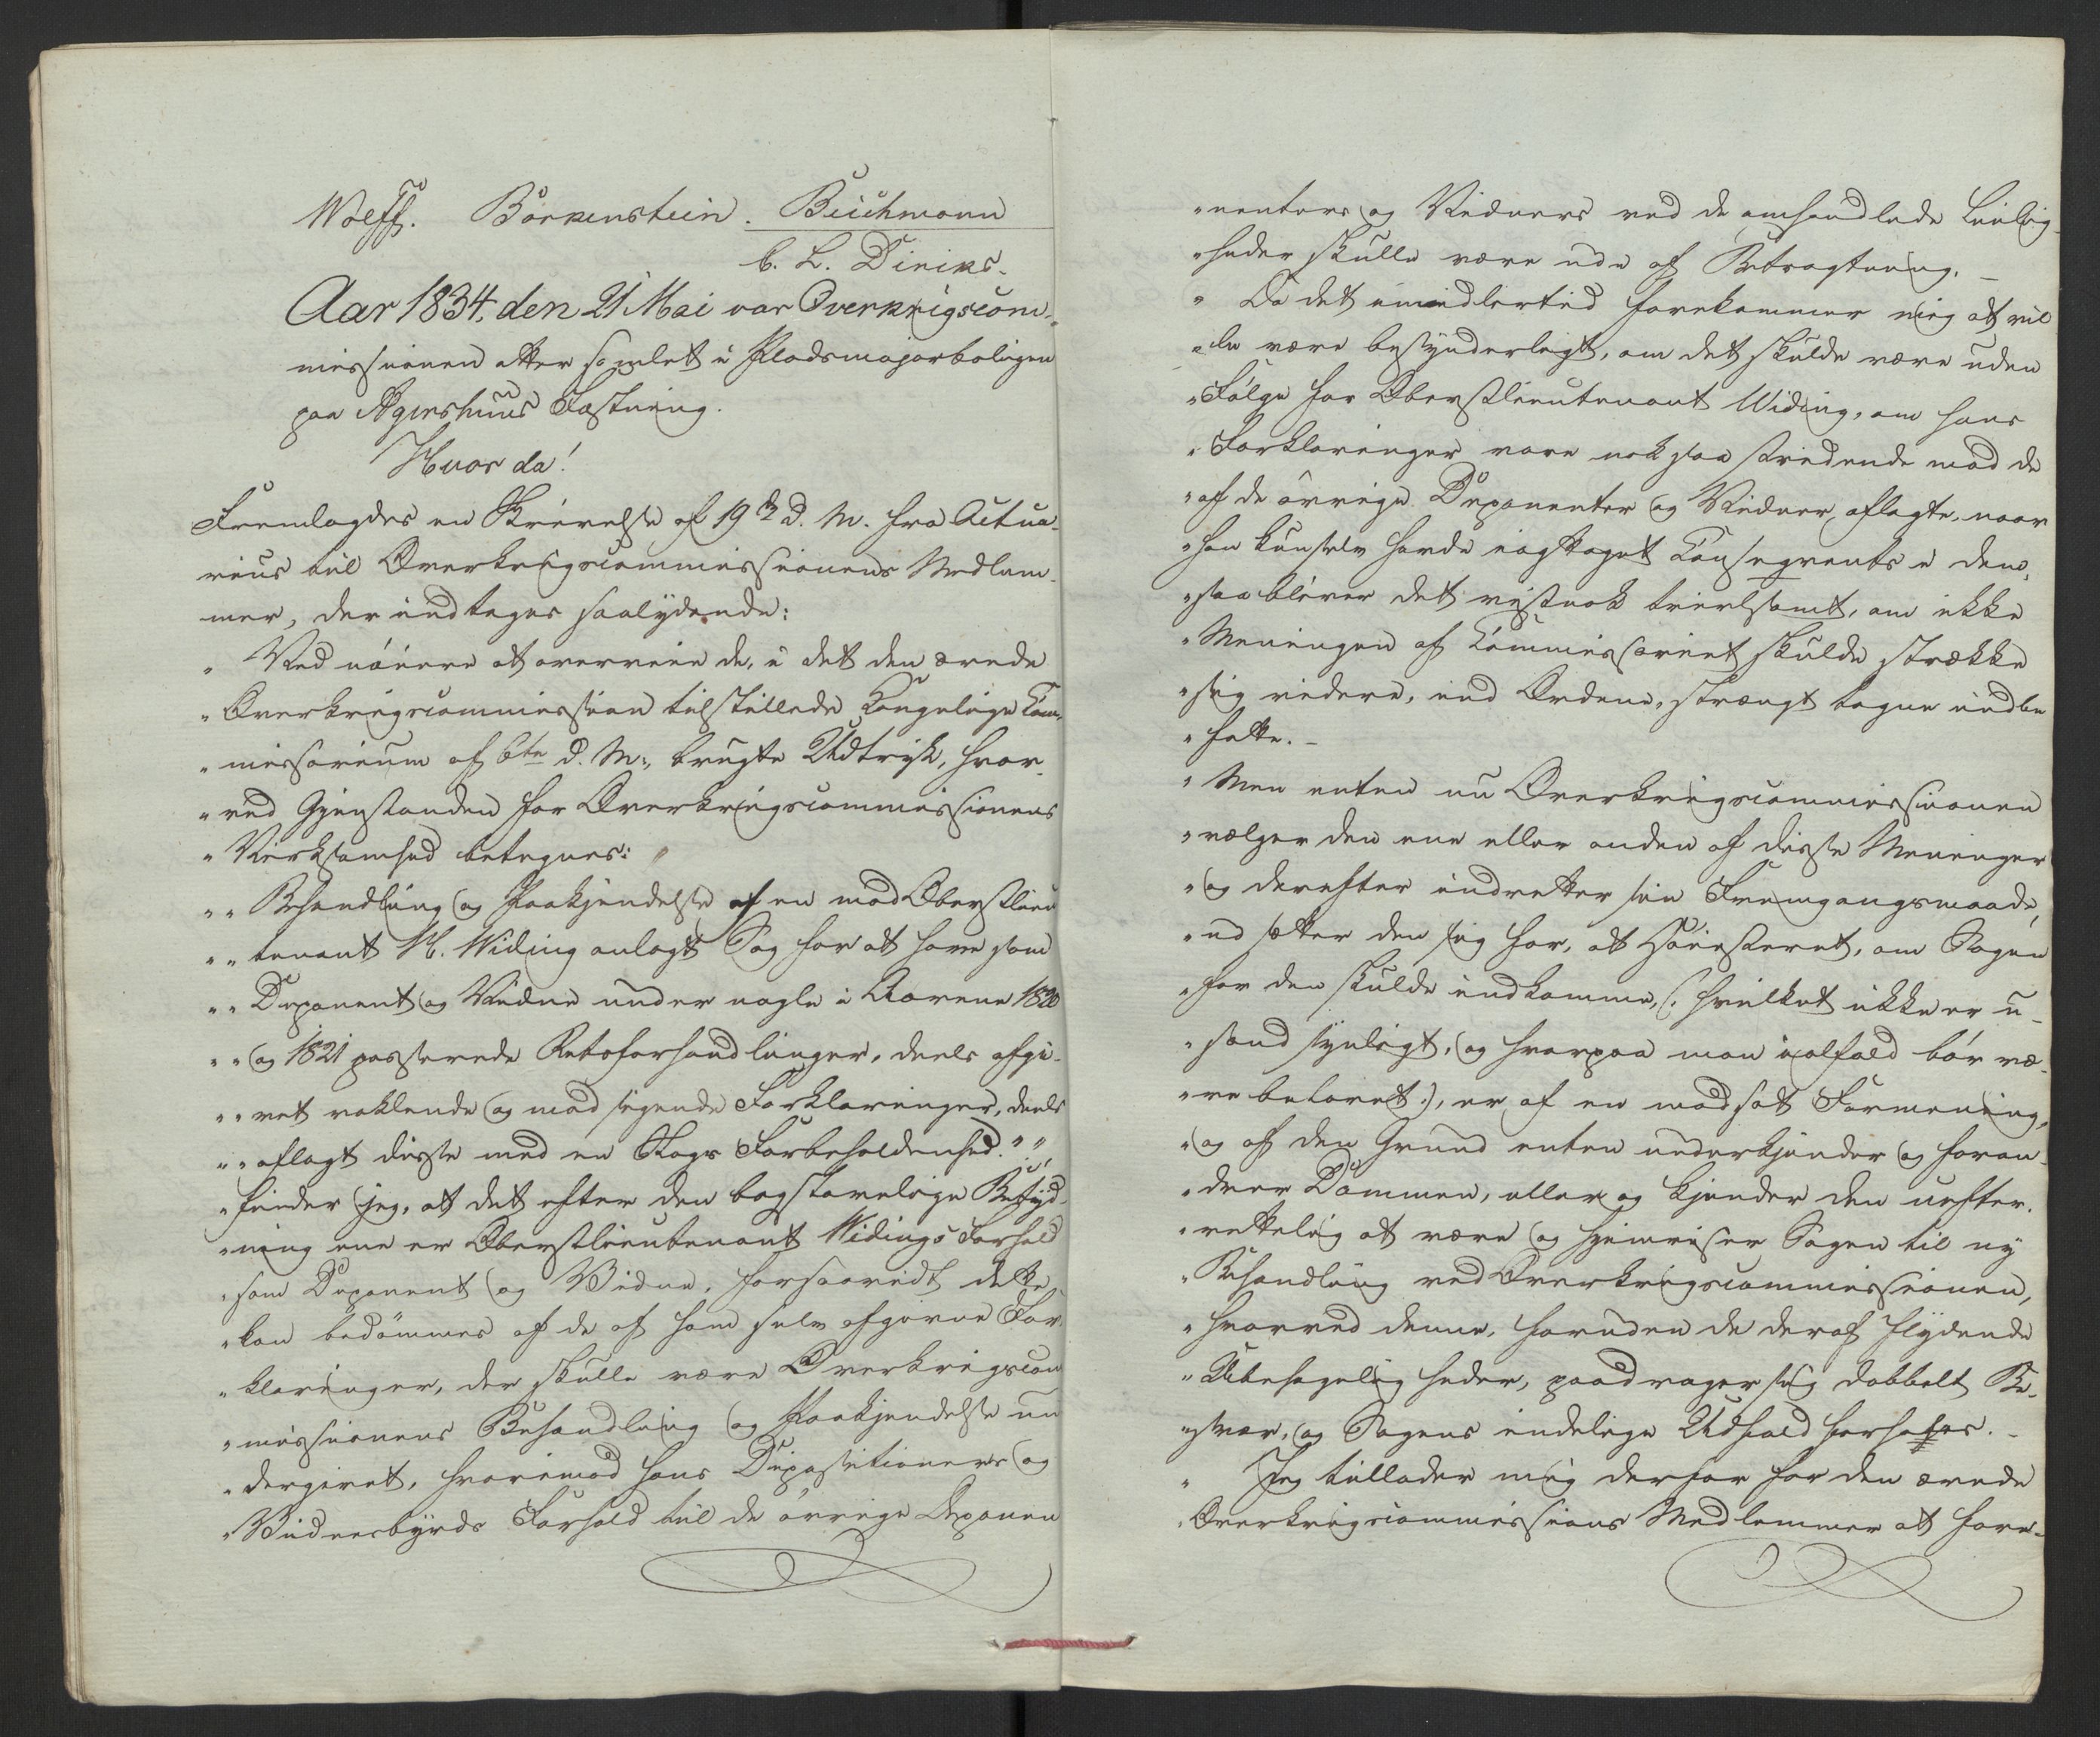 Wolff. Borkenstein. Beichmann
C. L. Diriks.
Aar 1834, den 21 Mai var Overkrigscom-
missionen atter samlet i Pladsmajorboligen
paa Agershuus Fæstning.
Hvor da!
Fremlagdes en Skrivelse af 19de d. M. fra Actua-
rius til Overkrigscommissionens Medlem-
mer, der indtages saalydende:
" Ved nöiere at overveie de, i det den ærede
" Overkrigscommission tilstillede Kongelige Com-
" missorium af 6te d. M., brugte Udtryk, hvor-
" ved Gjenstanden for Overkrigscommissionens
" Virksomhed betegnes:
" " Behandling og Paakjendelse af en mod Oberstlieu
" " tenant M. Widing anlagt Sag for at have som
" " Deponent og Vidne under nogle i Aarene 1820
" " og 1821 passerede Retsforhandlinger, deels afgi-
" " vet vaklende og modsigende Forklaringer, deels
" " aflagt disse med en Slags Forbeholdenhed." "
" finder jeg, at det efter den bogstavelige Betyd-
" ning ene er Oberstlieutenant Widings Forhold
" som Deponent og Vidne, forsaavidt dette
" kan bedömmes af de af ham selv afgivne For-
" klaringer, der skulle være Overkrigscom
" missionens Behandling og Paakjendelse un
" dergivet, hvorimod hans Depositioners og
" Vidnesbyrds Forhold til de övrige Deponen
" nenters og Vidners ved de omhandlede Leilig-
" heder skulle være ude af Betragtning. _
" Da det imidlertid forekommer mig at vil
" le være besynderligt, om det skulde være uden
" Fölge for Oberstlieutenant Widing, om hans
" Forklaringer vare nok saa stridende mod de
" af de övrige Deponenter og Vidner aflagte, naar
" han kun selv havde iagttaget Consequents i dem,
" saa bliver det vistnok tvivlsomt, om ikke
" Meningen af Commissoriet skulde strække
" sig videre, end Ordene, strængt tagne indbe
" fatte. _
" Men enten nu Overkrigscommissionen
" vælger den ene eller anden af disse Meninger
" og derefter indretter sin Fremgangsmaade,
" udsetter den sig for, at Höiesteret, om Sagen
" for den skulde indkomme, (: hvilket ikke er u-
" sandsynligt, og hvorpaa man ialfald bör væ-
" re belavet :), er af en modsat Formening,
" og af den Grund enten underkjender og foran-
" drer Dommen, eller og kjender den uefter-
" rettelig at være og hjemviser Sagen til ny
" Behandling ved Overkrigscommissionen,
" hvorved denne, foruden de deraf flydende
" Ubehageligheder, paadrager sig dobbelt Be-
" svær, og Sagens endelige Udfald forhales. _
" Jeg tillader mig derfor for den ærede
" Overkrigscommissions Medlemmer at fore-